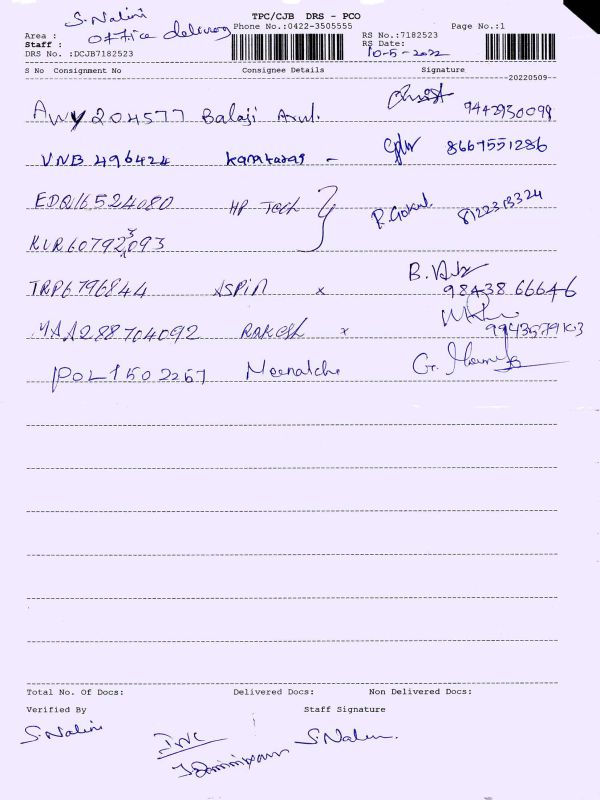 S. Nalini
TPC/CJB DRS - PCO
Office delivery
Phone No.:0422-3505555
Page No.:1
Area :
RS No.:7182523
Staff :
RS Date:
10-5-2022
DRS No. :DCJB7182523
S No Consignment No Consignee Details Signature
20220509
AWY204577 Balaji Arul. 9442930098
VNB 496424 8667551286
EDQ16524080 HP Tech R. Gokul 8122313324
KUR60792093
3
TRP6796844 ASPIN x B. 98438 66646
MAA288704092 RAKESH x 9943579103
POL1502267 Meenatche G.
Total No. Of Docs: Delivered Docs: Non Delivered Docs:
Verified By Staff Signature
S. Nalini S. Nalini